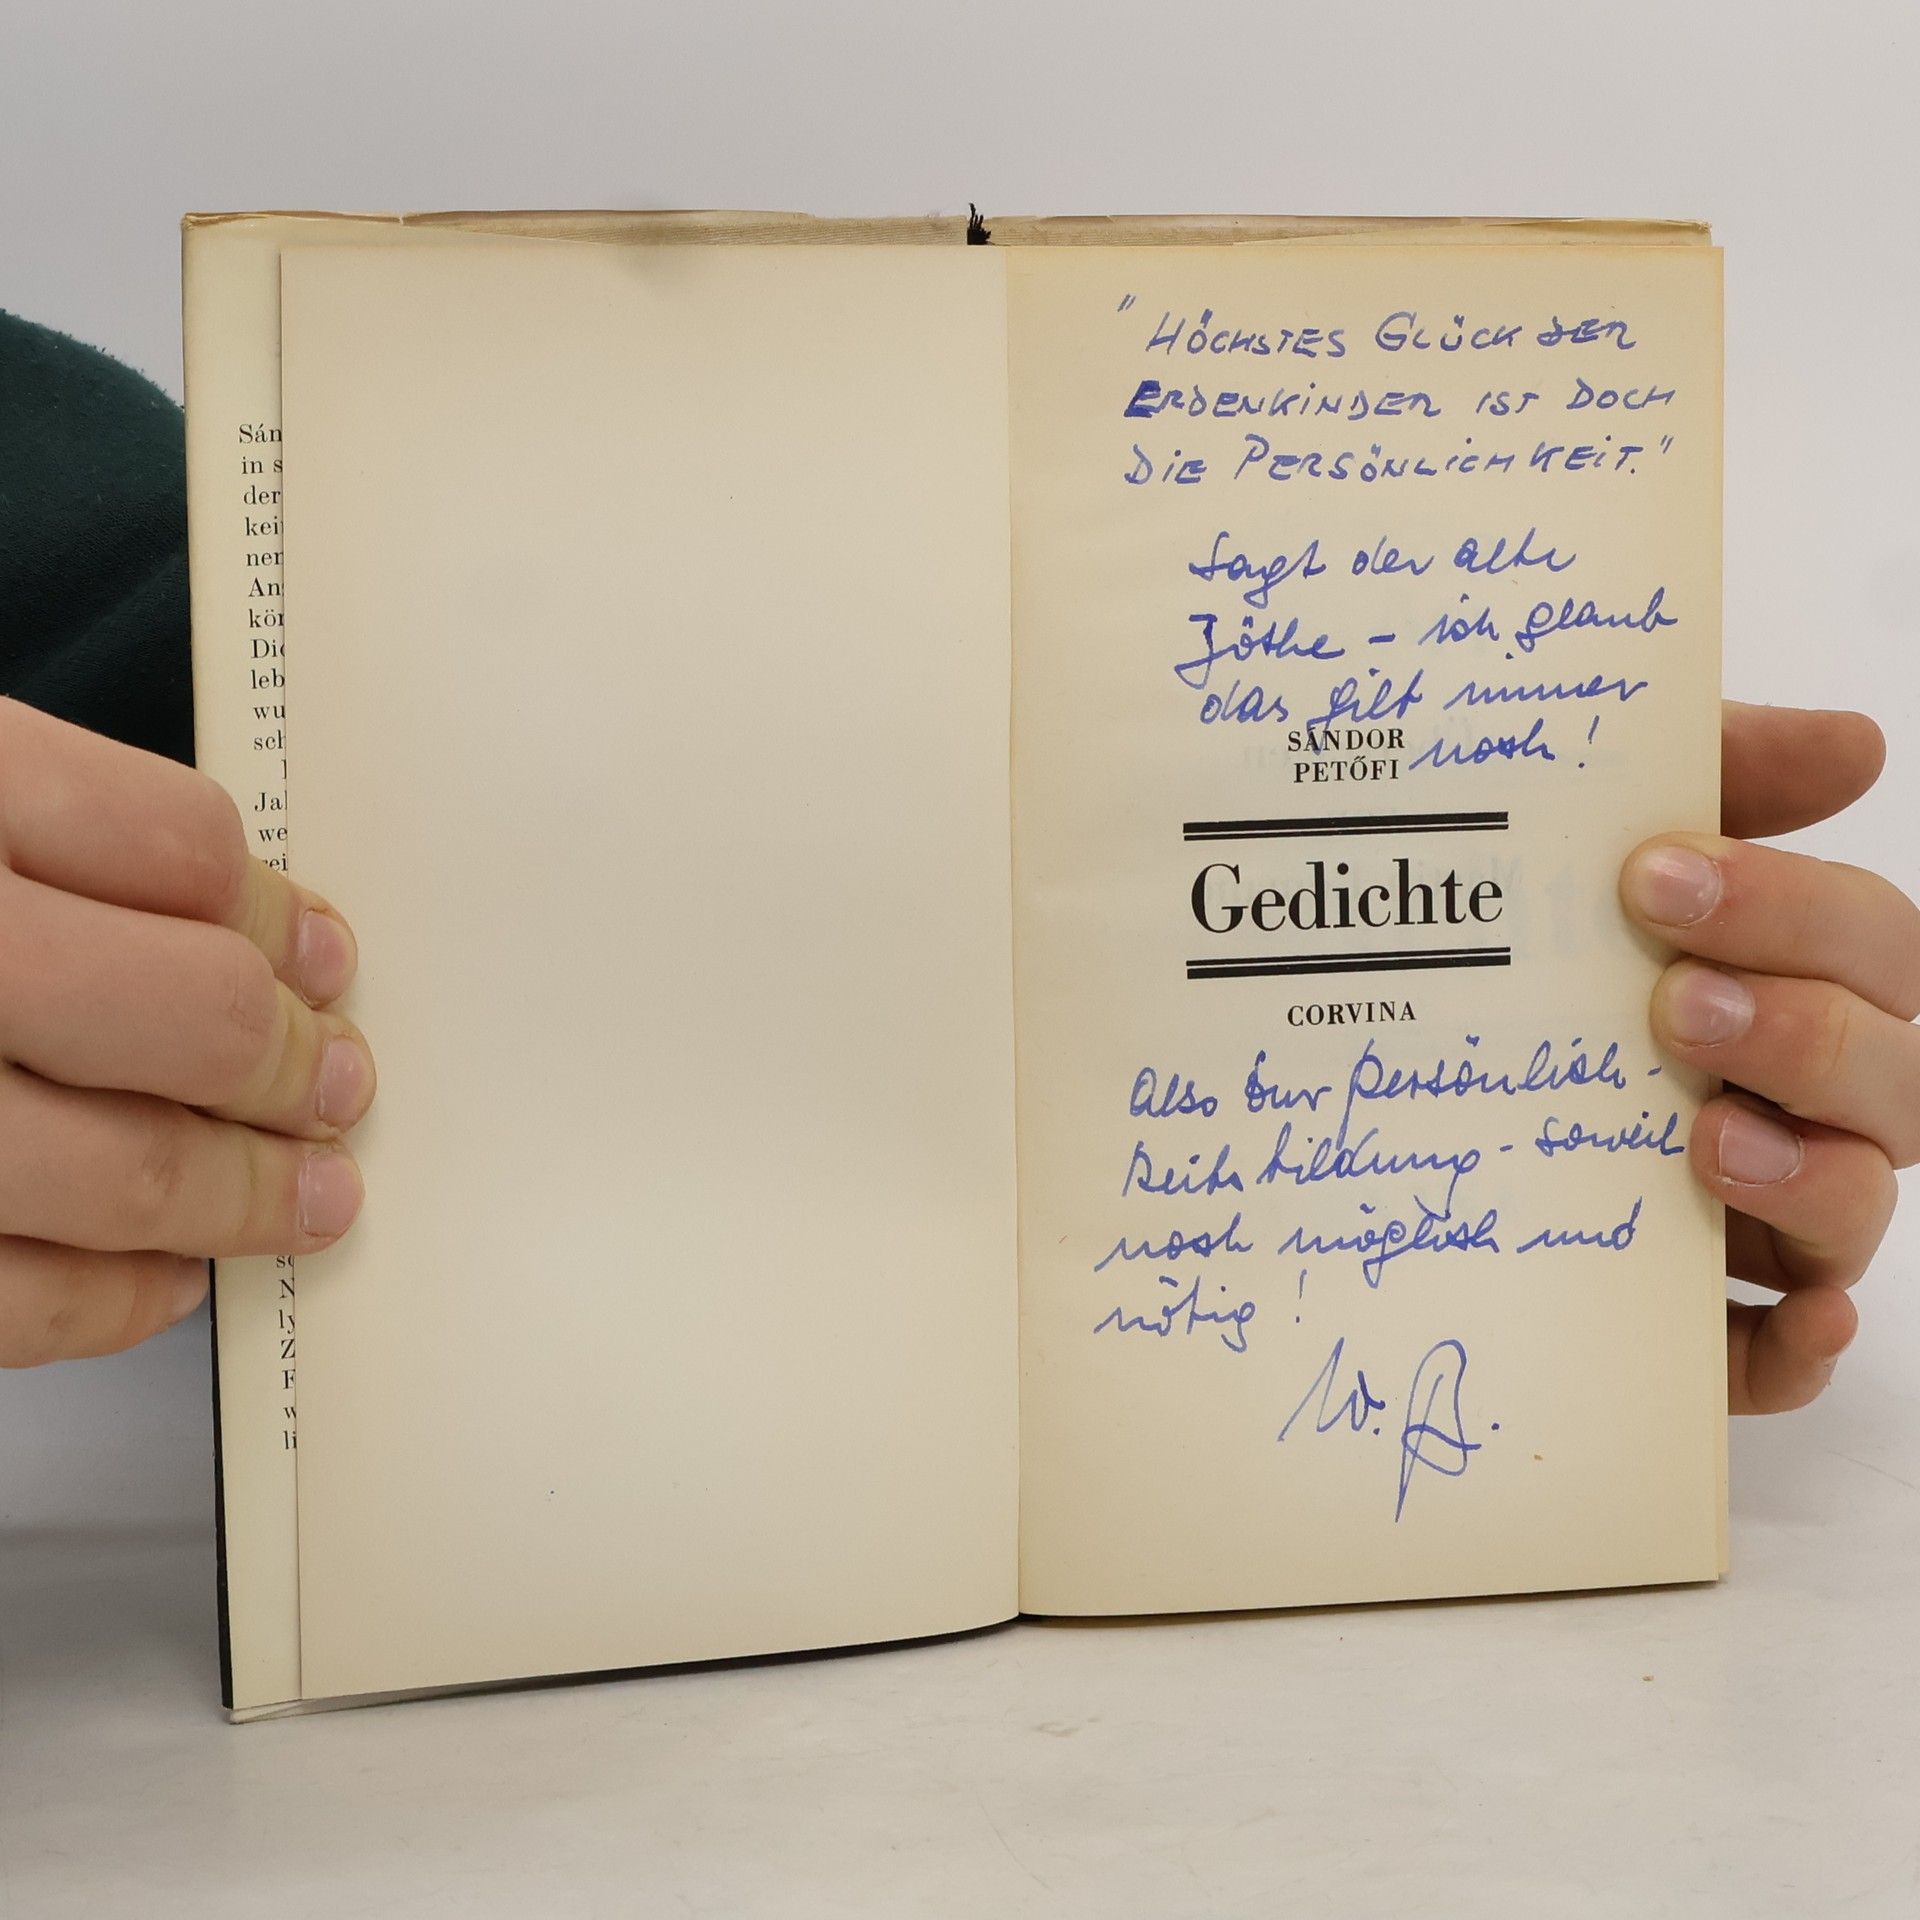 Sán
in s
der
kei
ner
An
kör
Die
leb
wu
sch
Jal
we
rei
so
N
ly
Z
F
w
li
"HÖCHSTES GLÜCK DER
ERDENKINDER IST DOCH
DIE PERSÖNLICHKEIT."
sagt der alte
Jöthe - ich glaub
das gilt immer
noch!
SÁNDOR
PETŐFI
Gedichte
CORVINA
Also zur Persönlich-
keits bildung - soweit
noch möglich und
nötig!
W. B.